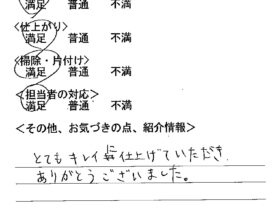 満足 普通 不満
<仕上がり>
満足 普通 不満
<掃除・片付け>
満足 普通 不満
<担当者の対応>
満足 普通 不満
<その他、お気づきの点、紹介情報>
とてもキレイに仕上げていただき
ありがとうございました。